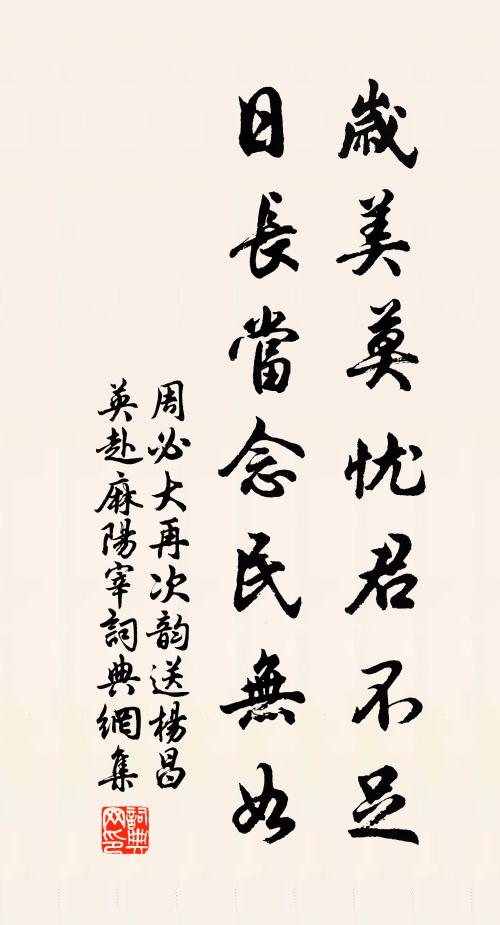 歲美莫忧君不足
日長當念民無如
周必大再次韵送楊昌
英赴麻陽宰詞典網集
詞典
网印